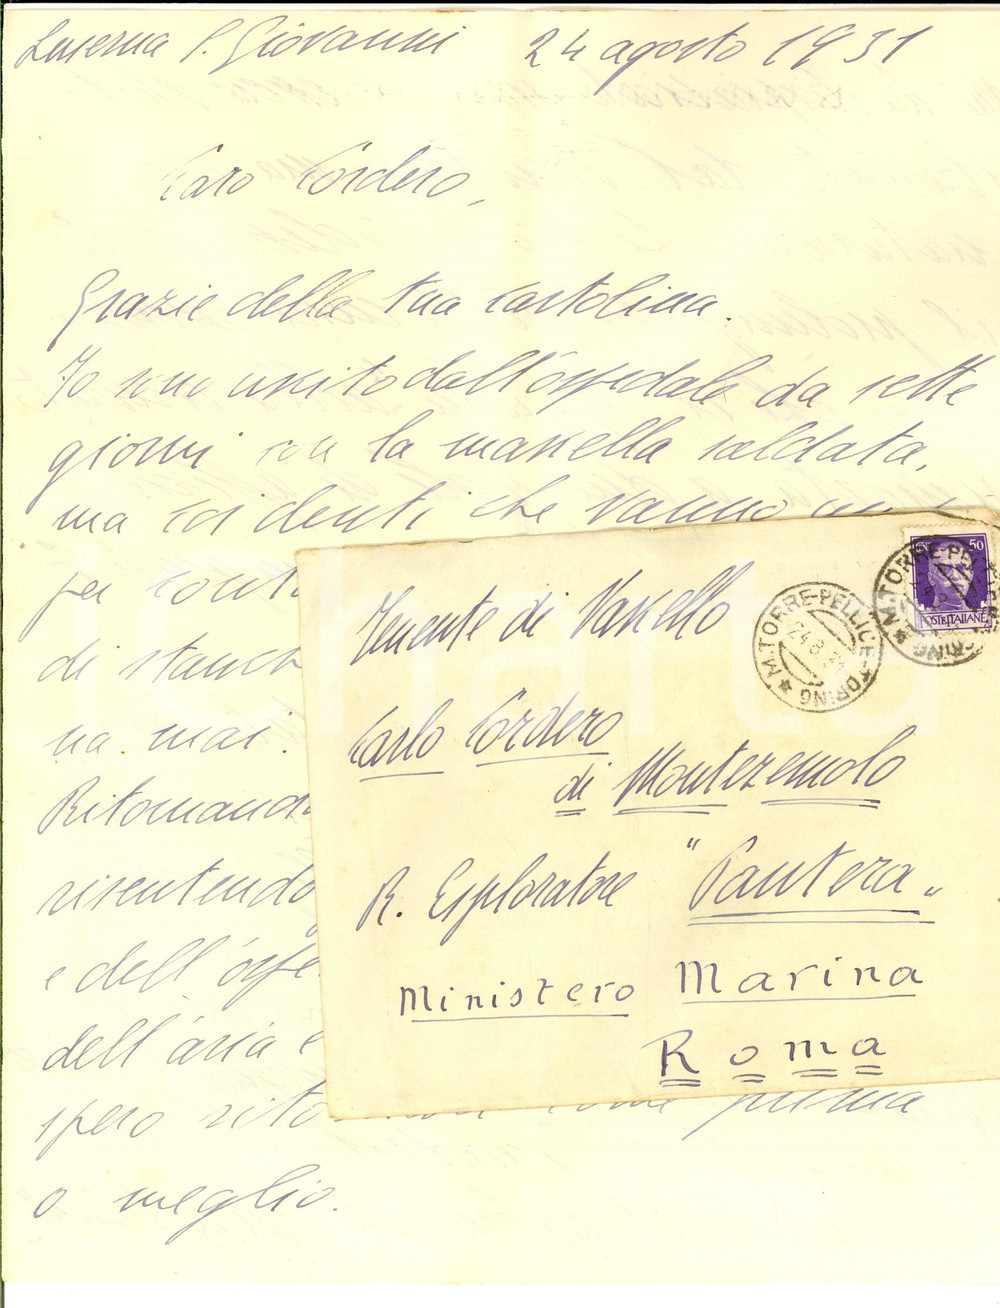 Luserna S. Giovanni 24 agosto 1931
Caro Cordero,
Grazie della tua cartolina.
Io sono uscito dall'ospedale da sette
giorni con la mascella saldata,
ma coi denti che vanno
per
di
na mai.
risentendo
e dell'
dell'aria e
spero come prima
o meglio.
Tenente di Vascello
Carlo Cordero
di Montezemolo
R. Esploratore "Pantera"
Ministero Marina
Roma
M. TORRE-PELLICE TORINO
24.8.31
M. TORRE-PE
50
POSTE ITALIANE